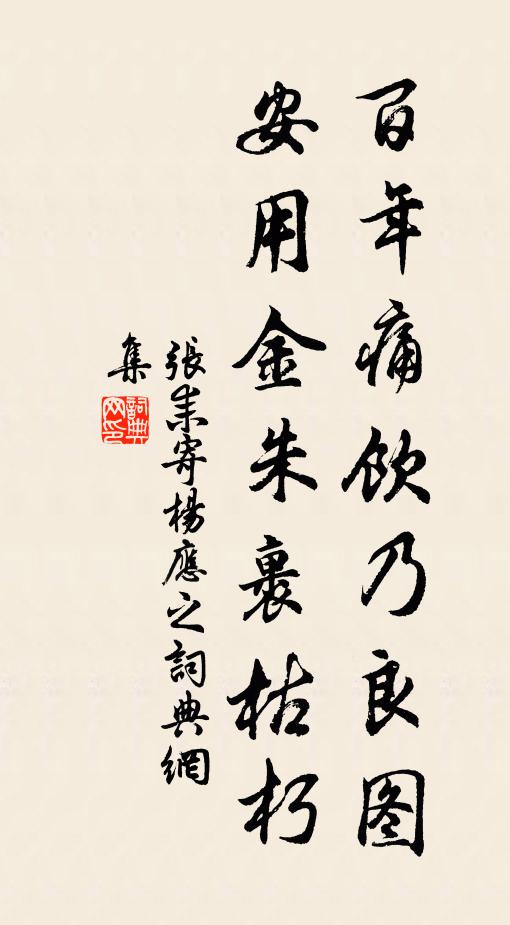 百年痛飲乃良图
安用金朱裹枯朽
張耒寄楊應之詞典網
集
詞典
网印